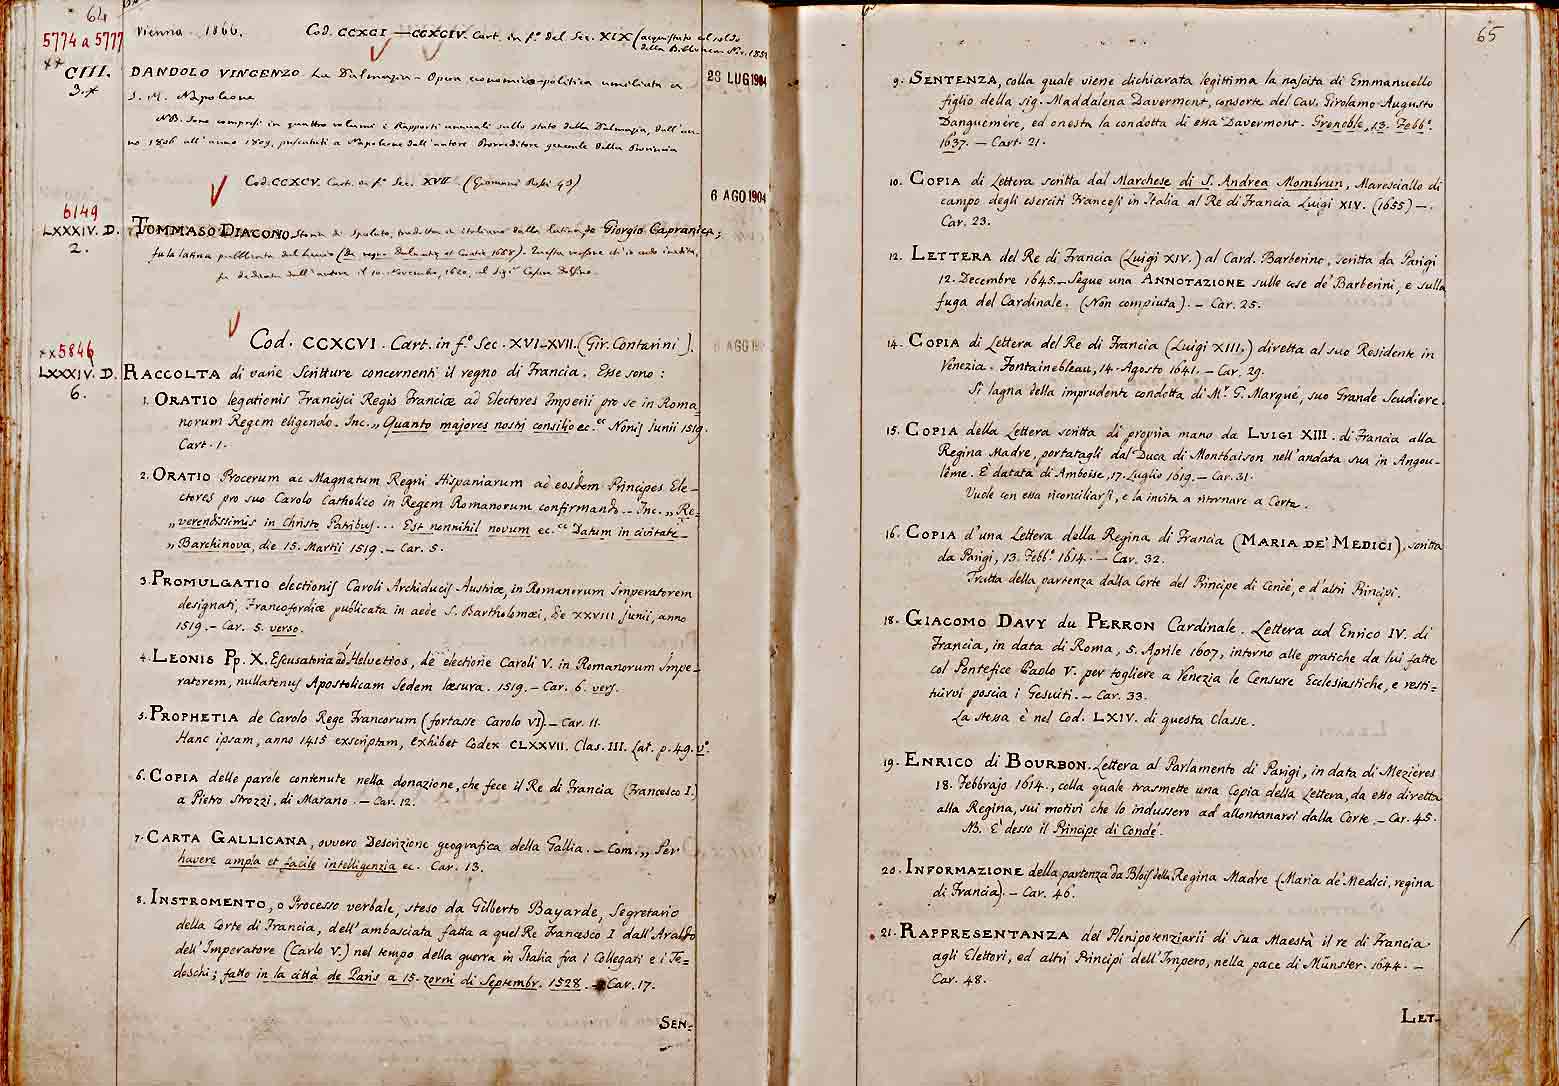 64
5774 a 5777
Vienna 1866.
Cod. CCXCI — CCXCIV. Cart. in f.º del Sec. XIX (acquistato col soldo
della Biblioteca
CIII.
3.
DANDOLO VINCENZO. La Dalmazia - Opera economico-politica umiliata a
28 LUG 1904
S. M. Napoleone
NB. Sono compresi in quattro volumi i Rapporti annuali sullo stato della Dalmazia, dall'an-
no 1806 all'anno 1809, presentati a Napoleone dall'autore Provveditore generale della Provincia
Cod. CCXCV. Cart. in f.º Sec. XVII. (Giovanni Rossi 49)
6 AGO 1904
6149
LXXXIV. D.
2.
TOMMASO DIACONO Storia di Spalato, tradotta in italiano dalla latina da Giorgio Capranica;
fu la latina pubblicata dal Lucio (De regno Dalmatiæ et Croatiæ 1668). Questa versione ch'io credo inedita,
fu dedicata dall'autore il 10. Novembre, 1620, al Sig.r Delfino.
Cod. CCXCVI. Cart. in f.º Sec. XVI-XVII. (Gir. Contarini).
6 AGO 190
xx5846
LXXXIV. D.
6.
RACCOLTA di varie Scritture concernenti il regno di Francia. Esse sono:
1. ORATIO legationis Francisci Regis Franciæ ad Electores Imperii pro se in Roma-
norum Regem eligendo. Inc. „ Quanto majores nostri consilio ec." Nonis Junii 1519.
Cart. 1.
2. ORATIO Procerum ac Magnatum Regni Hispaniarum ad eosdem Principes Ele-
ctores pro suo Carolo Catholico in Regem Romanorum confirmando. - Inc. „ Re-
„ verendissimis in Christo Patribus... Est nonnihil novum ec." Datum in civitate
„ Barchinova, die 15. Martii 1519. - Car. 5.
3. PROMULGATIO electionis Caroli Archiducis Austriæ, in Romanorum Imperatorem
designati, Francofordiæ publicata in aede S. Bartholomæi, de XXVIII Junii, anno
1519. - Car. 5. verso.
4. LEONIS Pp. X. Escusatoria ad Helvetios, de electione Caroli V. in Romanorum Impe-
ratorem, nullatenus Apostolicam Sedem læsura. 1519. - Car. 6. vers.
5. PROPHETIA de Carolo Rege Francorum (fortasse Carolo VI). - Car. 11.
Hanc ipsam, anno 1415 exscriptam, exhibet Codex CLXXVII. Clas. III. Lat. p. 49. vº.
6. COPIA delle parole contenute nella donazione, che fece il Re di Francia (Francesco I.)
a Pietro Strozzi, di Marano. - Car. 12.
7. CARTA GALLICANA, ovvero Descrizione geografica della Gallia. - Com. „ Per
havere ampla et facile intelligenzia ec. Car. 13.
8. INSTROMENTO, o Processo verbale, steso da Gilberto Bayarde, Segretario
della Corte di Francia, dell'ambasciata fatta a quel Re Francesco I dall'Araldo
dell'Imperatore (Carlo V.) nel tempo della guerra in Italia fra i Collegati e i Te-
deschi; fatto in la città de Paris a 15. zorni di Septembr. 1528. - Car. 17.
SEN-
65
9. SENTENZA, colla quale viene dichiarata legittima la nascita di Emmanuello
figlio della sig. Maddalena Davermont, consorte del Cav. Girolamo Augusto
Danguemère, ed onesta la condotta di essa Davermont. Grenoble, 13. Febbº.
1637. - Cart. 21.
10. COPIA di Lettera scritta dal Marchese di S. Andrea Mombrun, Maresciallo di
campo degli eserciti Francesi in Italia al Re di Francia Luigi XIV. (1655) -.
Car. 23.
12. LETTERA del Re di Francia (Luigi XIV.) al Card. Barberino, scritta da Parigi
12. Decembre 1645. - Segue una ANNOTAZIONE sulle cose de' Barberini, e sulla
fuga del Cardinale. (Non compiuta). - Car. 25.
14. COPIA di Lettera del Re di Francia (Luigi XIII.) diretta al suo Residente in
Venezia. Fontainebleau, 14. Agosto 1641. - Car. 29.
Si lagna della imprudente condotta di Mr. G. Marqué, suo Grande Scudiere.
15. COPIA della Lettera scritta di propria mano da LUIGI XIII. di Francia alla
Regina Madre, portatagli dal Duca di Montbaison nell'andata sua in Angou-
lême. È datata di Amboise, 17. Luglio 1619. - Car. 31.
Vuole con essa riconciliarsi, e la invita a ritornare a Corte.
16. COPIA d'una Lettera della Regina di Francia (MARIA DE' MEDICI), scritta
da Parigi, 13. Febbº. 1614. - Car. 32.
Tratta della partenza dalla Corte del Principe di Condé, e d'altri Principi.
18. GIACOMO DAVY du PERRON Cardinale. Lettera ad Enrico IV. di
Francia, in data di Roma, 5. Aprile 1607, intorno alle pratiche da lui fatte
col Pontefice Paolo V. per togliere a Venezia le Censure Ecclesiastiche, e resti-
tuirvi poscia i Gesuiti. - Car. 33.
La stessa è nel Cod. LXIV. di questa Classe.
19. ENRICO di BOURBON. Lettera al Parlamento di Parigi, in data di Mezières
18. Febbrajo 1614., colla quale trasmette una Copia della Lettera, da esso diretta
alla Regina, sui motivi che lo indussero ad allontanarsi dalla Corte. - Car. 45.
NB. È desso il Principe di Condé.
20. INFORMAZIONE della partenza da Blois della Regina Madre (Maria de' Medici, regina
di Francia). - Car. 46.
21. RAPPRESENTANZA dei Plenipotenziarii di sua Maestà il re di Francia
agli Elettori, ed altri Principi dell'Impero, nella pace di Münster. 1644. -
Car. 48.
LET-